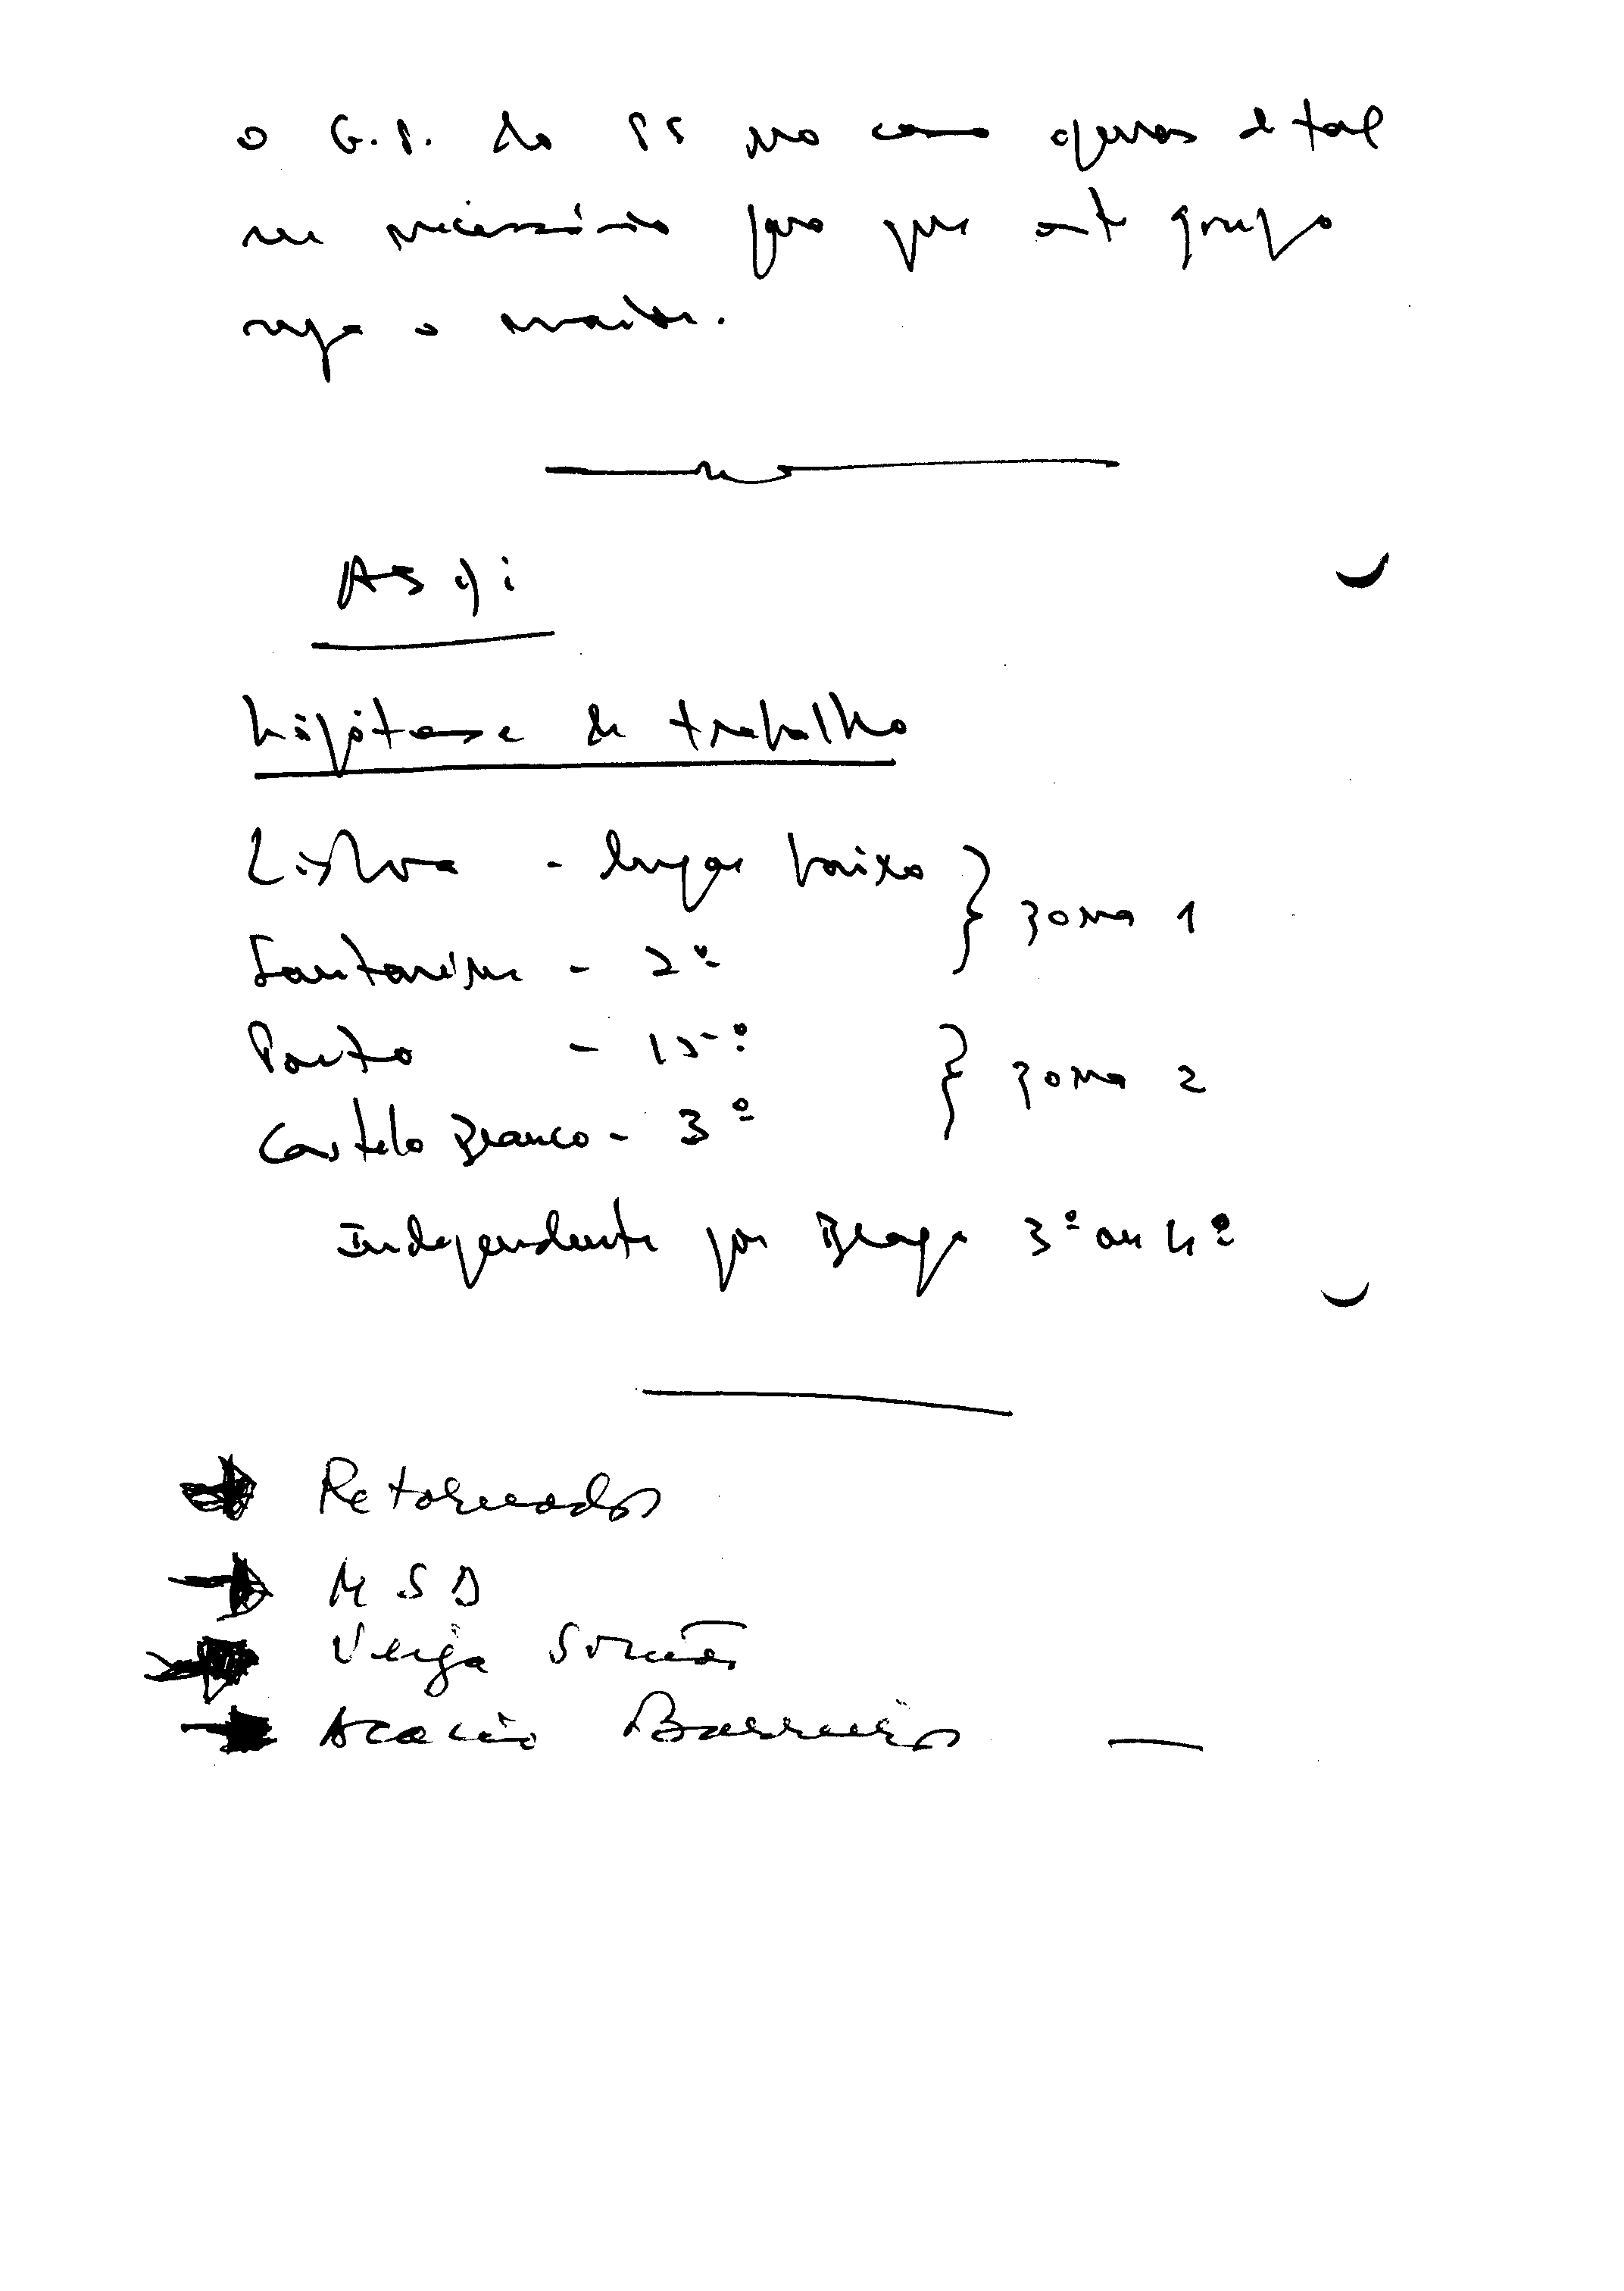 o G.P. do PS no caso apenas de tal
ser necessário para que este grupo
seja o maior.
ASDI
hipótese de trabalho
Lisboa - lugar baixo } zona 1
Santarém - 2º
Porto - 15º } zona 2
Castelo Branco - 3º
Independente por Braga 3º ou 4º
Retornados
MSD
Veiga Simão
Acácio Barreiros